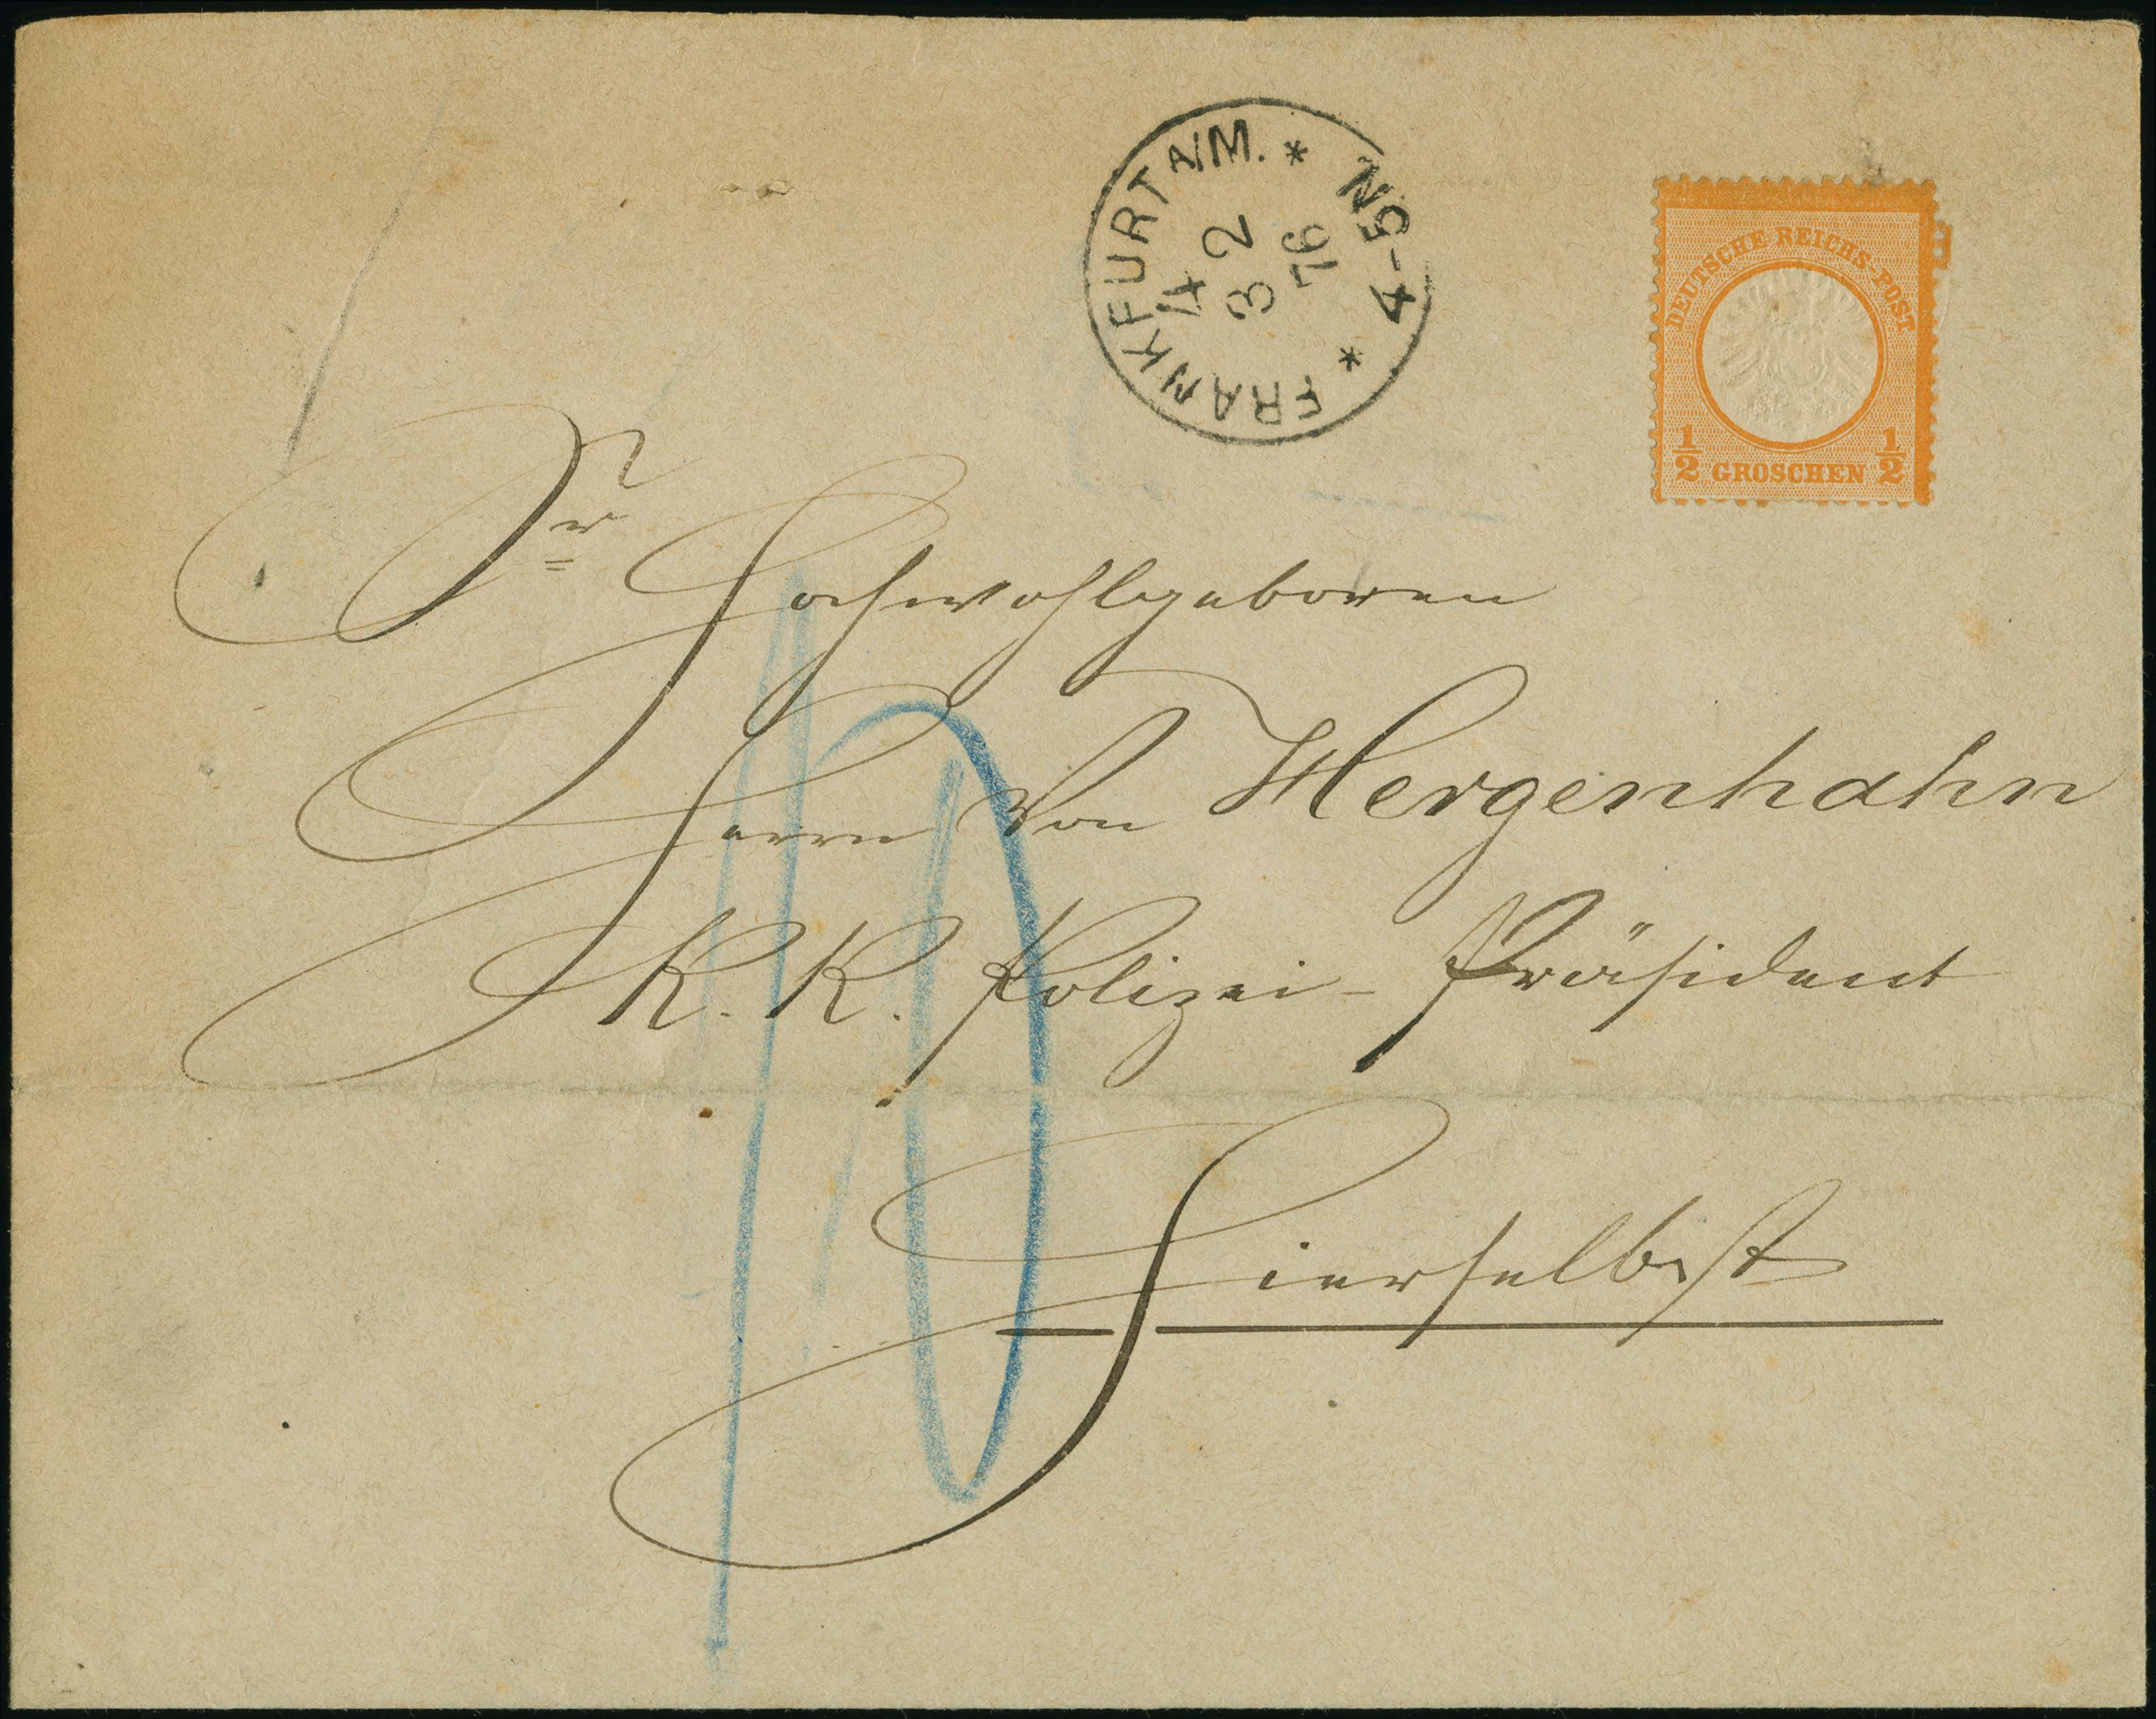 FRANKFURT A/M. * 4-5N. *
4
3 2
76
DEUTSCHE REICHS-POST
½ GROSCHEN ½
Sr Hochwohlgeboren
Herrn von Hergenhahn
K. K. Polizei-Präsident
Hierselbst
10